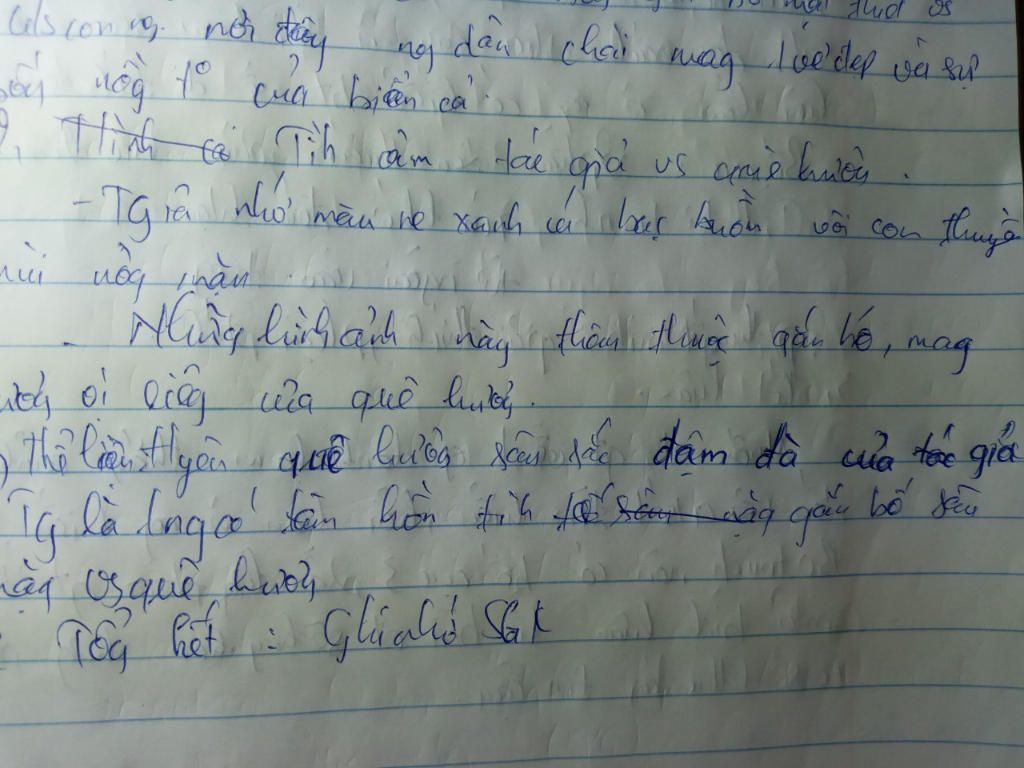 con ng. nơi đây ng dân chài mag 1 vẻ đẹp và sự
nồg tº của biển cả.
Tìh cảm tác giả vs quê hươg.
- TGiả nhớ màu nc xanh cá bạc buồm vôi con thuyề
mùi nồg mặn
- Nhữg hìh ảnh này thân thuộc gắn bó, mag
riêg của quê hươg.
Thể hiện tyêu quê hươg sâu sắc đậm đà của tác giả
Tg là 1 ng có tâm hồn tih tế gắn bó sâu
nặg vs quê hươg
Tổg kết : Ghi nhớ SGK